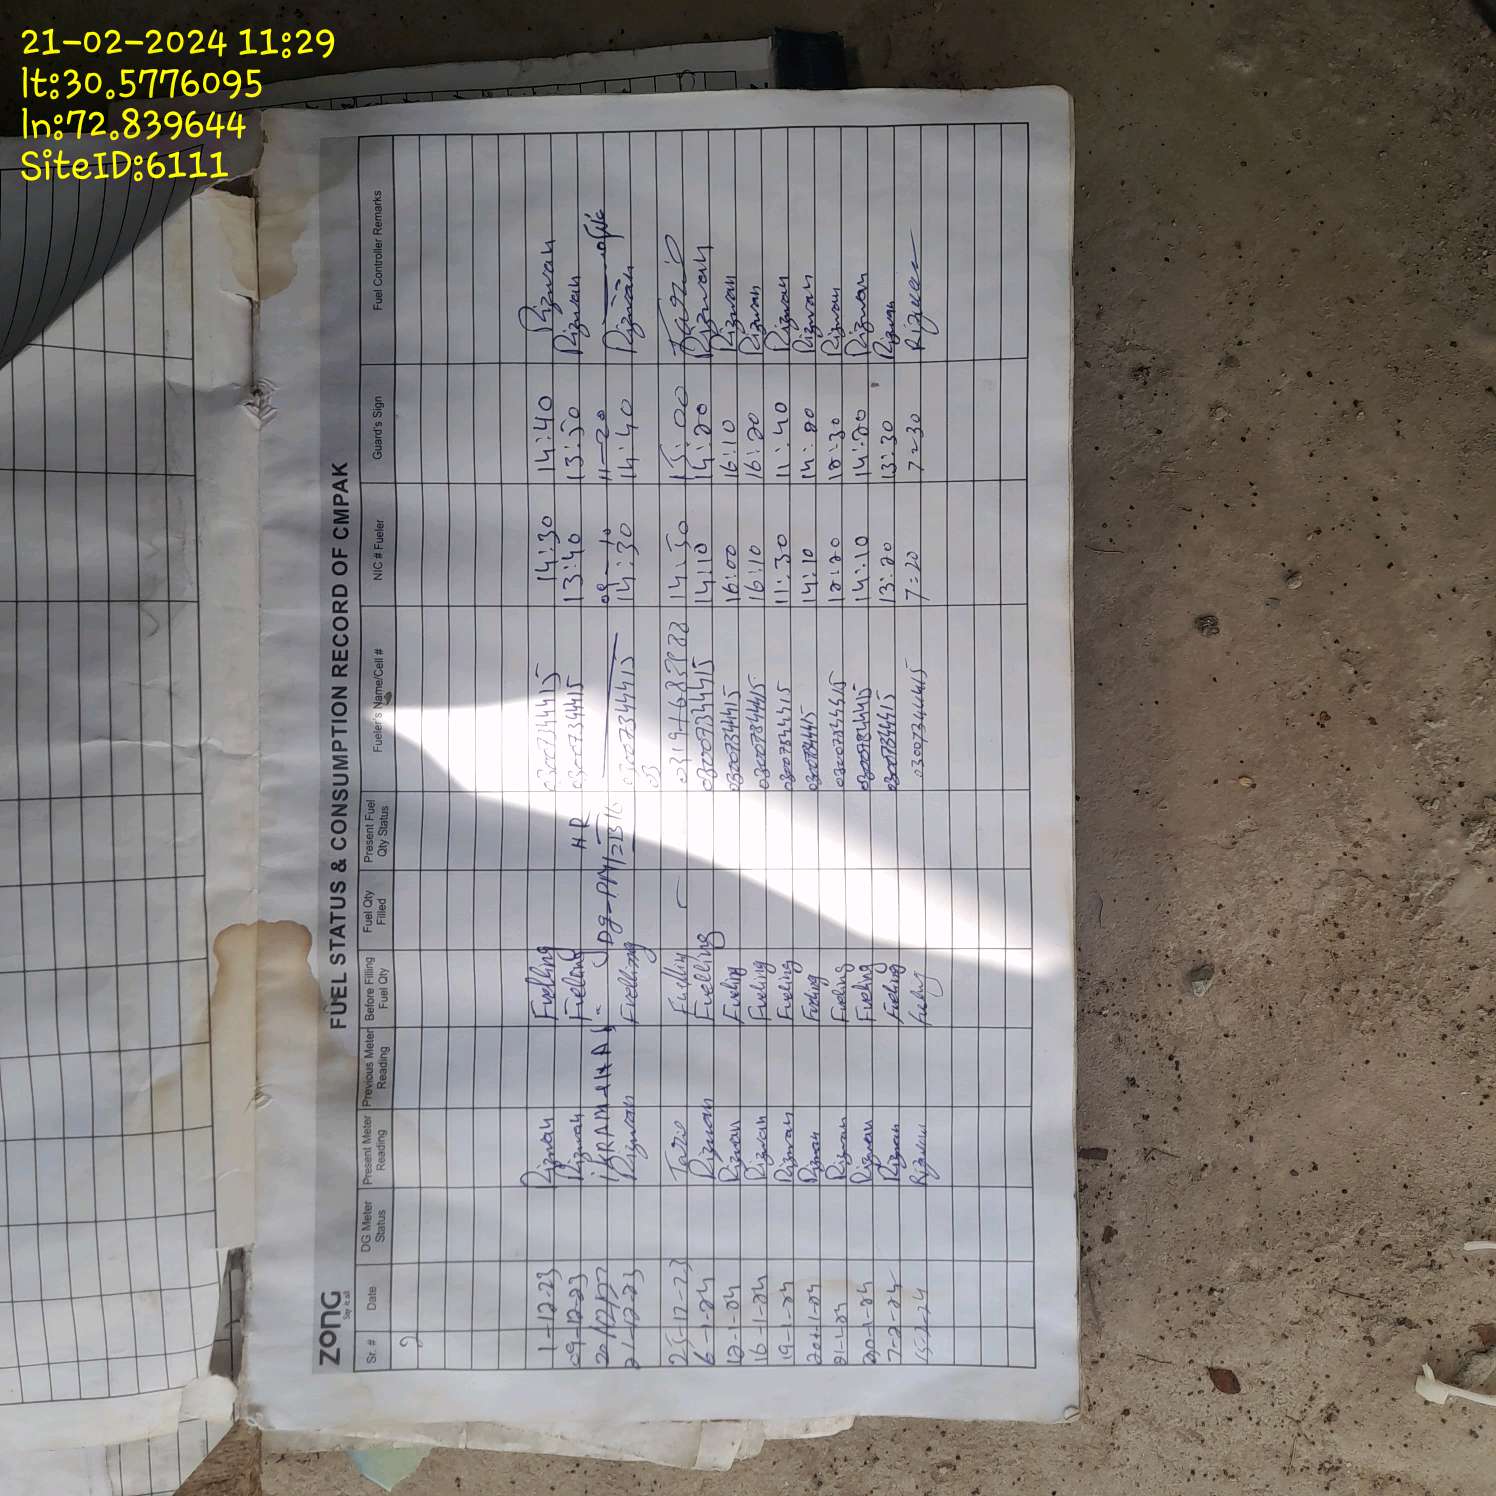 21-02-2024 11:29
lt:30.5776095
ln:72.839644
SiteID:6111
zong
Say it all
FUEL STATUS & CONSUMPTION RECORD OF CMPAK
Sr. # Date DG Meter Status Present Meter Reading Previous Meter Reading Before Filling Fuel Qty Fuel Qty Filled Present Fuel Qty Status Fueler's Name/Cell # NIC # Fueler Guard's Sign Fuel Controller Remarks
2
1-12-23 Rizwan Fuelling 03007344415 14:30 14:40 Rizwan
09-12-23 Rizwan Fuelling 03007344415 13:40 13:50 Rizwan
IKRAM HR 09-10 11-20
21-12-23 Rizwan Fuelling 03007344415 14:30 14:40 Rizwan
03
25-12-23 Fuellin 14:50 15:00
6-1-24 Rizwan Fuelling 03007344415 14:10 14:20 Rizwan
12-1-24 Rizwan Fueling 03007344415 16:00 16:10 Rizwan
16-1-24 Rizwan Fueling 03007344415 16:10 16:20 Rizwan
19-1-24 Rizwan Fueling 03007344415 11:30 11:40 Rizwan
Rizwan Fueling 03007344415 14:10 14:20 Rizwan
21-1-24 Rizwan Fueling 03007344415 12:20 12:30 Rizwan
30-1-24 Rizwan Fueling 03007344415 14:10 14:20 Rizwan
7-2-24 Rizwan Fueling 03007344415 13:20 13:30 Rizwan
15-2-24 Rizwan Fueling 03007344415 7:20 7:30 Rizwan